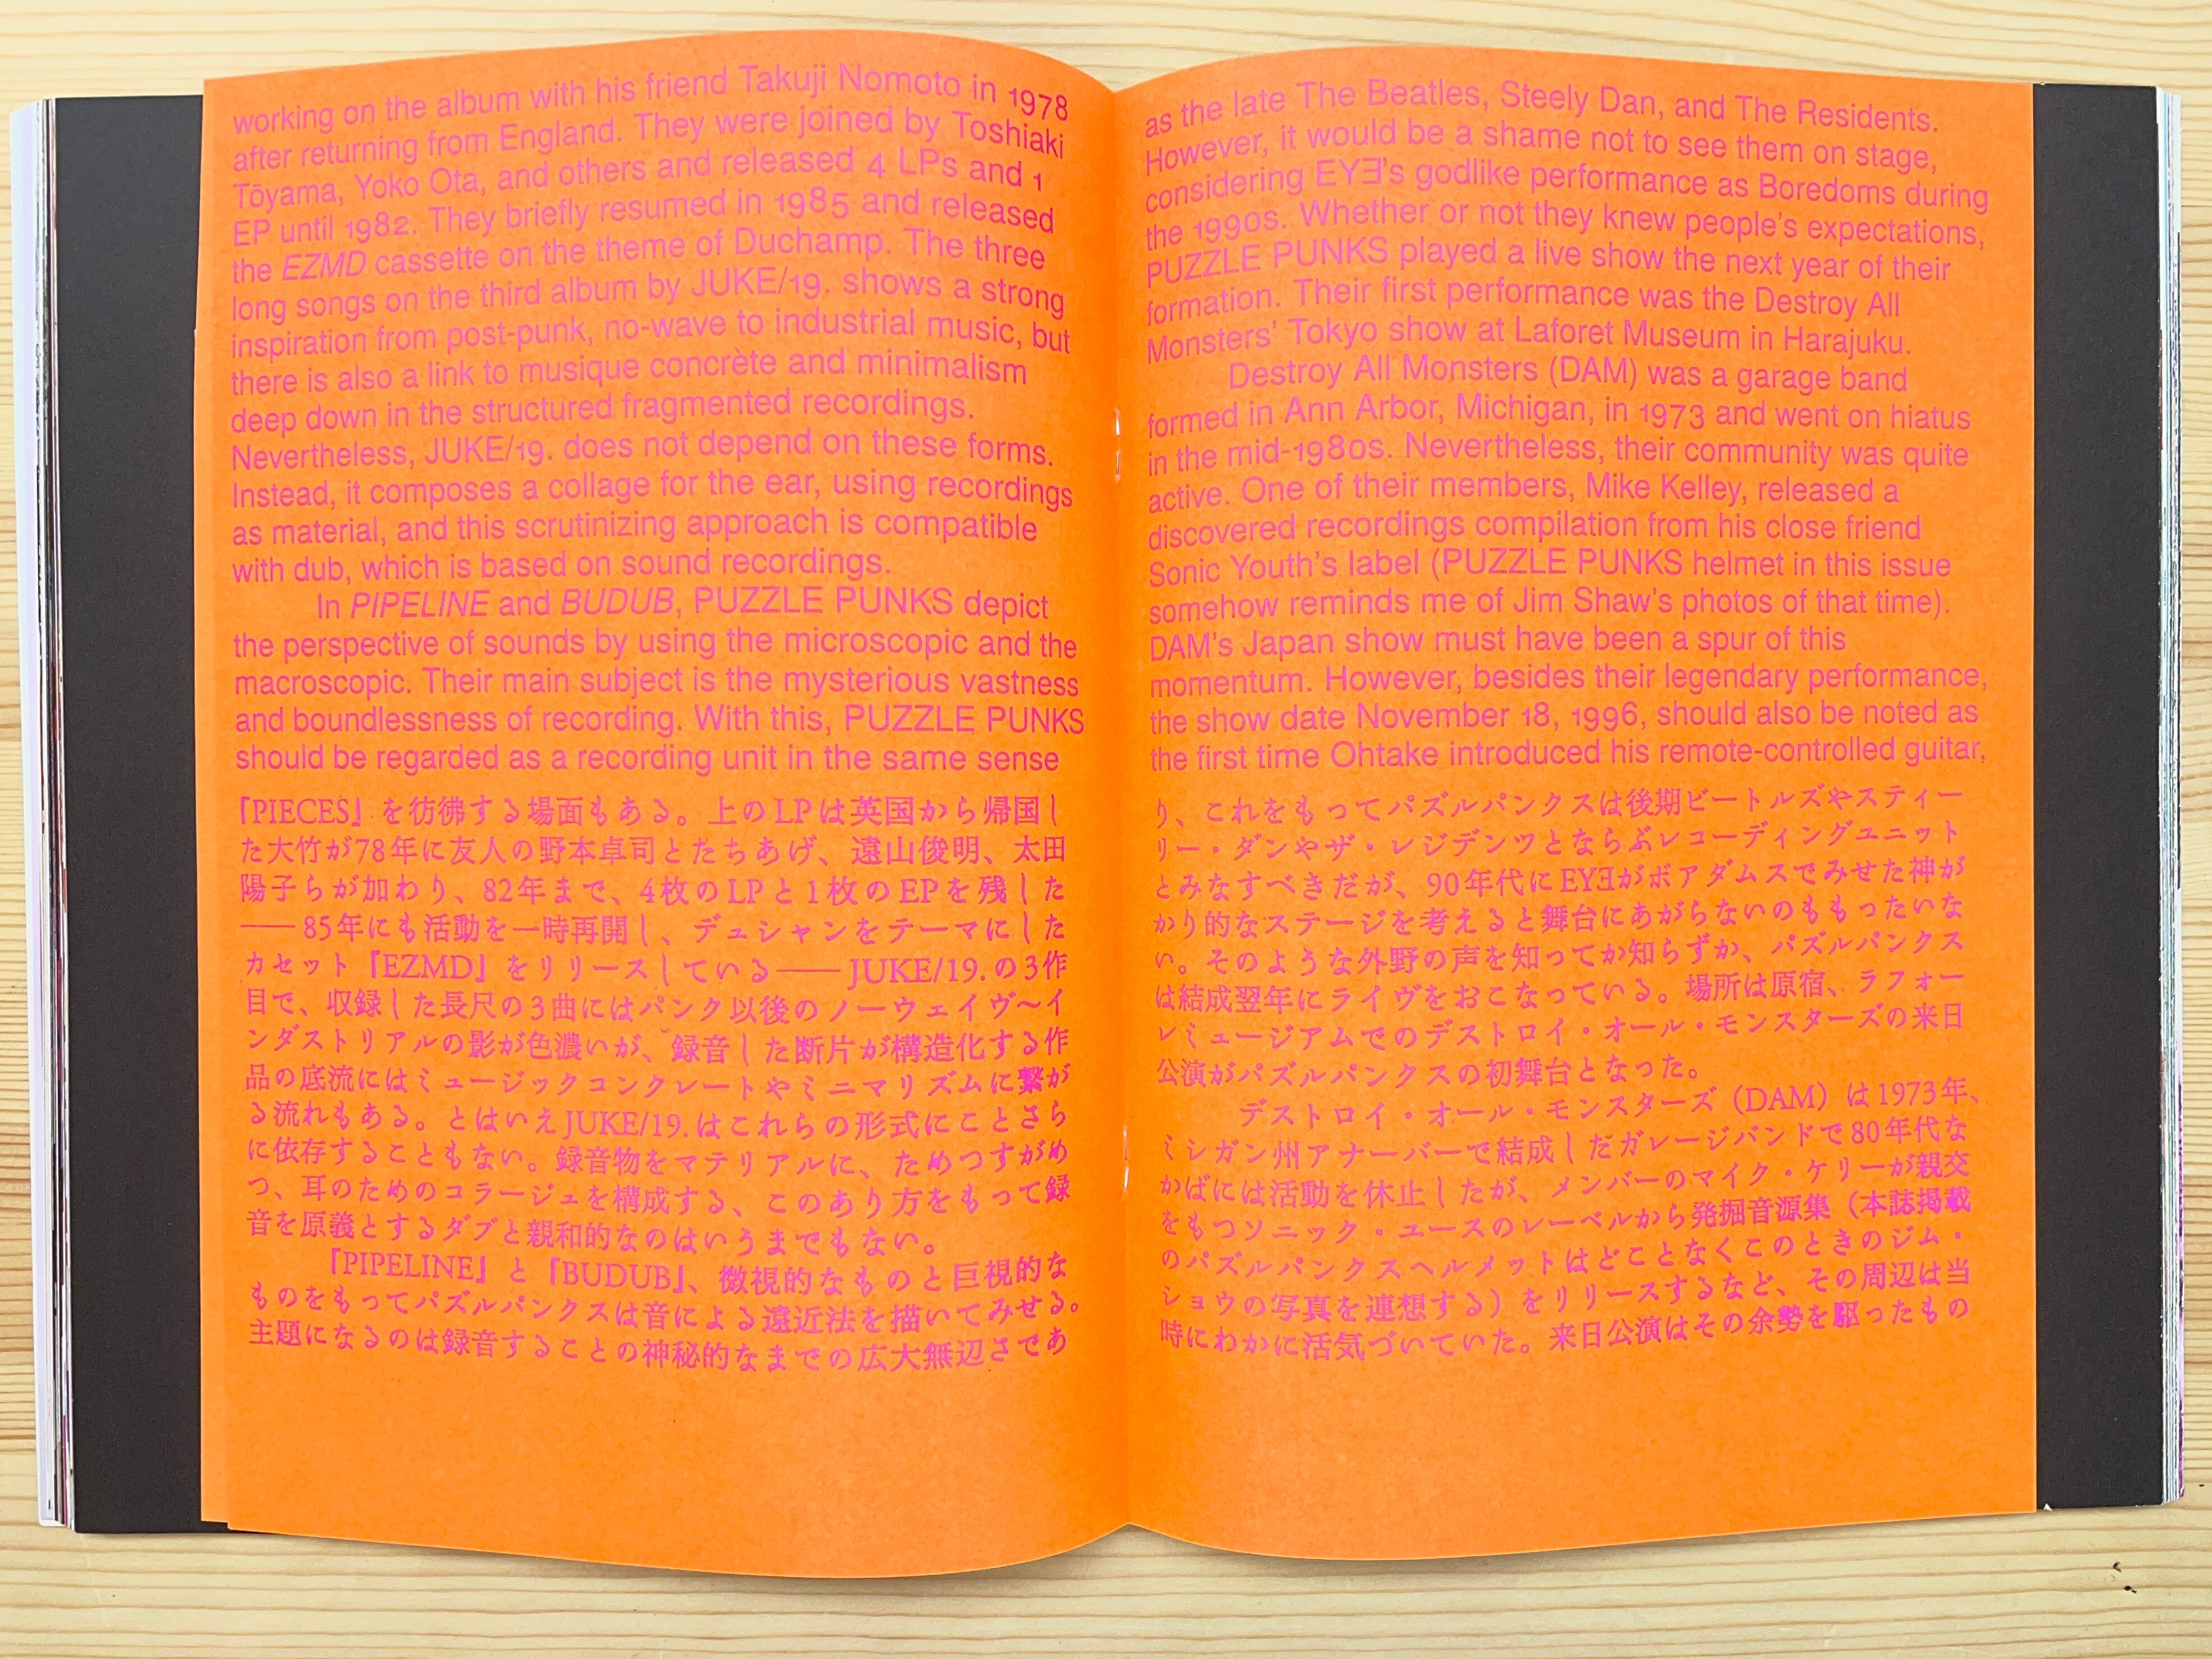 working on the album with his friend Takuji Nomoto in 1978
after returning from England. They were joined by Toshiaki
Tōyama, Yoko Ota, and others and released 4 LPs and 1
EP until 1982. They briefly resumed in 1985 and released
the EZMD cassette on the theme of Duchamp. The three
long songs on the third album by JUKE/19. shows a strong
inspiration from post-punk, no-wave to industrial music, but
there is also a link to musique concrète and minimalism
deep down in the structured fragmented recordings.
Nevertheless, JUKE/19. does not depend on these forms.
Instead, it composes a collage for the ear, using recordings
as material, and this scrutinizing approach is compatible
with dub, which is based on sound recordings.
In PIPELINE and BUDUB, PUZZLE PUNKS depict
the perspective of sounds by using the microscopic and the
macroscopic. Their main subject is the mysterious vastness
and boundlessness of recording. With this, PUZZLE PUNKS
should be regarded as a recording unit in the same sense
『PIECES』を彷彿する場面もある。上のLPは英国から帰国し
た大竹が78年に友人の野本卓司とたちあげ、遠山俊明、太田
陽子らが加わり、82年まで、4枚のLPと1枚のEPを残した
――85年にも活動を一時再開し、デュシャンをテーマにした
カセット『EZMD』をリリースしている――JUKE/19.の3作
目で、収録した長尺の3曲にはパンク以後のノーウェイヴ〜イ
ンダストリアルの影が色濃いが、録音した断片が構造化する作
品の底流にはミュージックコンクレートやミニマリズムに繋が
る流れもある。とはいえJUKE/19.はこれらの形式にことさら
に依存することもない。録音物をマテリアルに、ためつすがめ
つ、耳のためのコラージュを構成する、このあり方をもって録
音を原義とするダブと親和的なのはいうまでもない。
『PIPELINE』と『BUDUB』、微視的なものと巨視的な
ものをもってパズルパンクスは音による遠近法を描いてみせる。
主題になるのは録音することの神秘的なまでの広大無辺さであ
as the late The Beatles, Steely Dan, and The Residents.
However, it would be a shame not to see them on stage,
considering EYƎ's godlike performance as Boredoms during
the 1990s. Whether or not they knew people's expectations,
PUZZLE PUNKS played a live show the next year of their
formation. Their first performance was the Destroy All
Monsters' Tokyo show at Laforet Museum in Harajuku.
Destroy All Monsters (DAM) was a garage band
formed in Ann Arbor, Michigan, in 1973 and went on hiatus
in the mid-1980s. Nevertheless, their community was quite
active. One of their members, Mike Kelley, released a
discovered recordings compilation from his close friend
Sonic Youth's label (PUZZLE PUNKS helmet in this issue
somehow reminds me of Jim Shaw's photos of that time).
DAM's Japan show must have been a spur of this
momentum. However, besides their legendary performance,
the show date November 18, 1996, should also be noted as
the first time Ohtake introduced his remote-controlled guitar,
り、これをもってパズルパンクスは後期ビートルズやスティー
リー・ダンやザ・レジデンツとならぶレコーディングユニット
とみなすべきだが、90年代にEYƎがボアダムスでみせた神が
かり的なステージを考えると舞台にあがらないのももったいな
い。そのような外野の声を知ってか知らずか、パズルパンクス
は結成翌年にライヴをおこなっている。場所は原宿、ラフォー
レミュージアムでのデストロイ・オール・モンスターズの来日
公演がパズルパンクスの初舞台となった。
デストロイ・オール・モンスターズ（DAM）は1973年、
ミシガン州アナーバーで結成しだガレージバンドで80年代な
かばには活動を休止したが、メンバーのマイク・ケリーが親交
をもつソニック・ユースのレーベルから発掘音源集（本誌掲載
のパズルパンクスヘルメットはどことなくこのときのジム・
ショウの写真を連想する）をリリースするなど、その周辺は当
時にわかに活気づいていた。来日公演はその余勢を駆ったもの